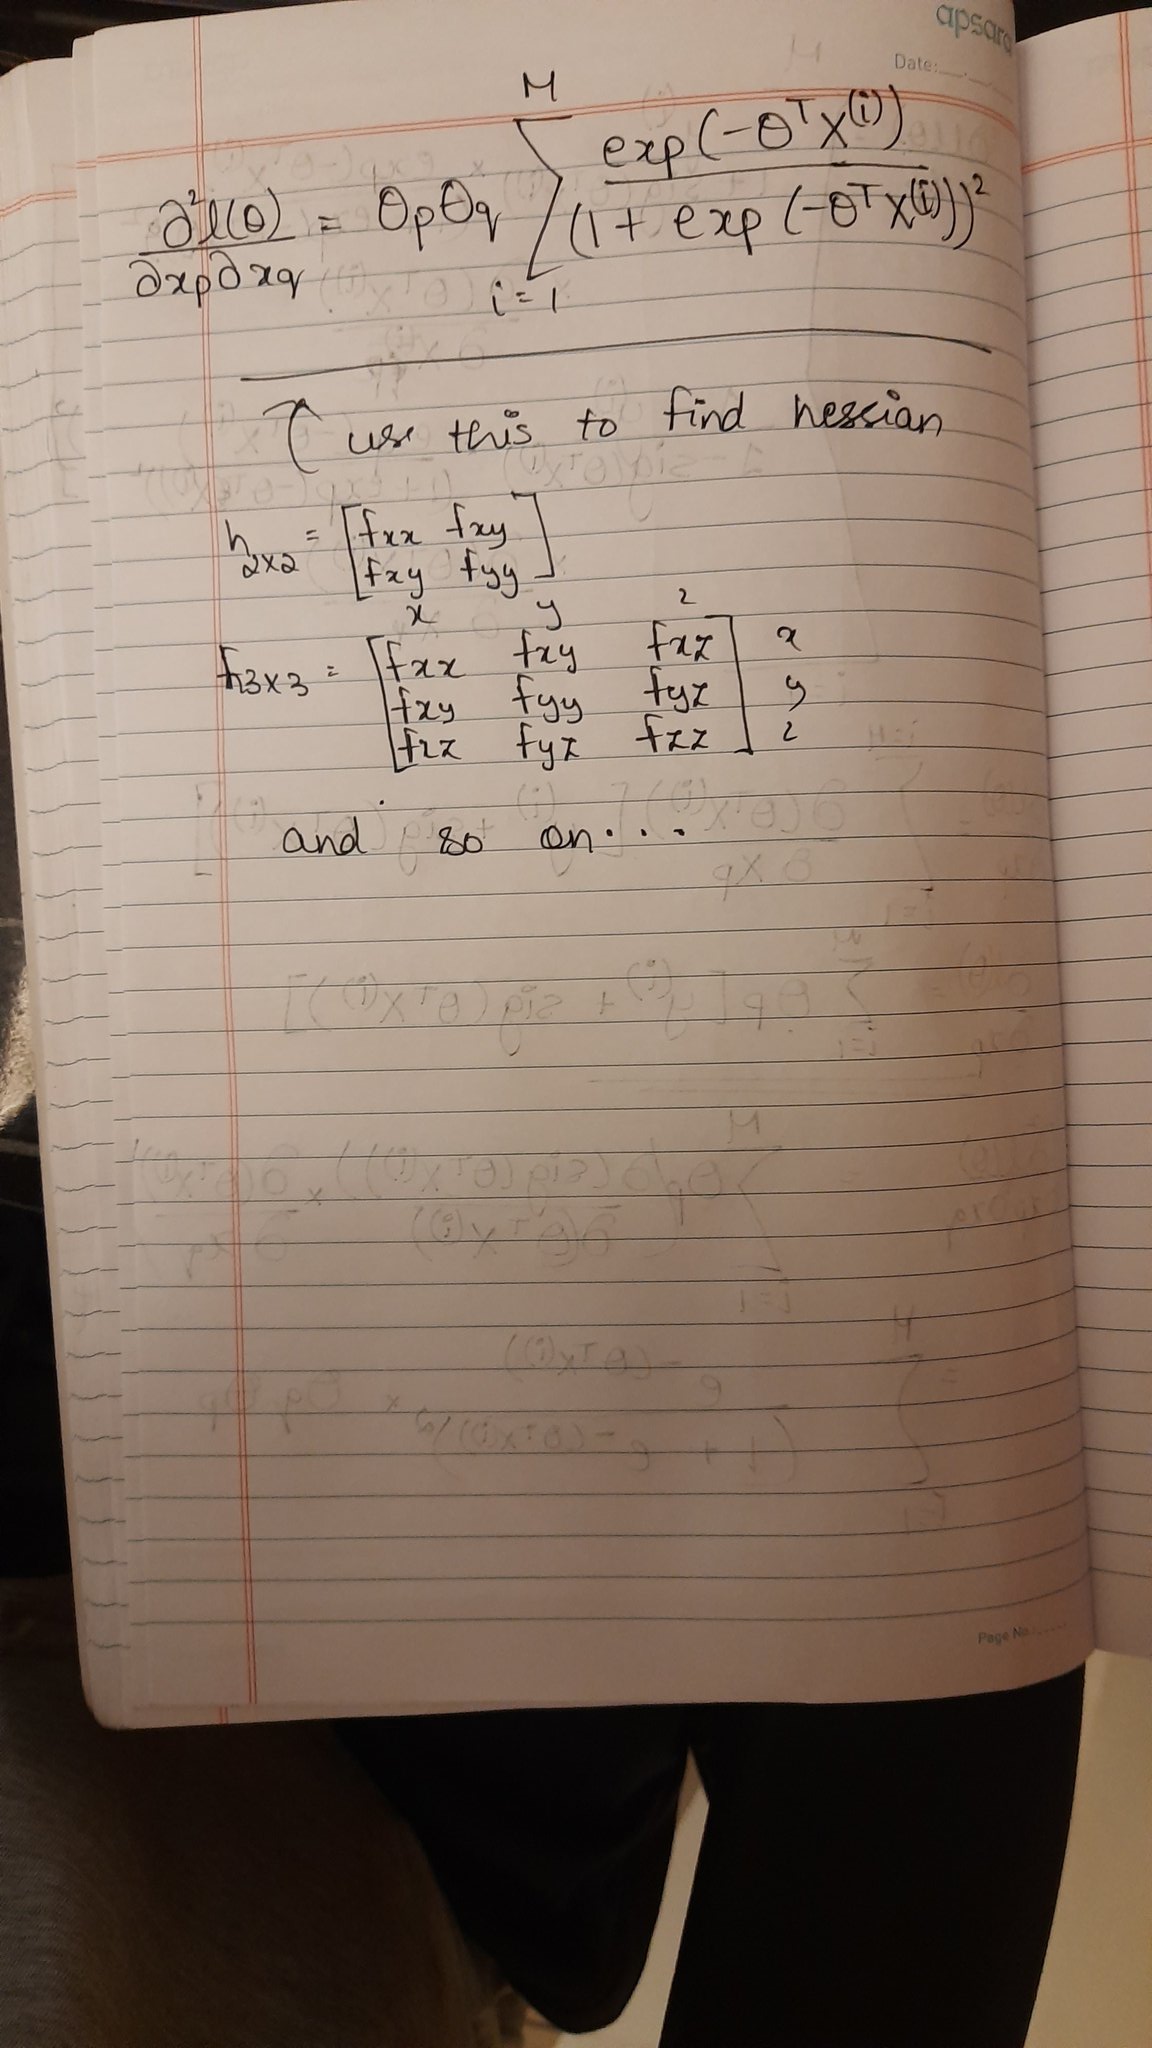 apsara
Date:
∂²l(θ)/∂xp∂xq = θpθq M∑i=1 exp(-θᵀX⁽ⁱ⁾)/(1 + exp(-θᵀX⁽ⁱ⁾))²
use this to find hessian
h2x2 = [fxx fxy
fxy fyy]
x y z
h3x3 = [fxx fxy fxz] x
fxy fyy fyz y
fxz fyz fzz z
and so on...
Page No